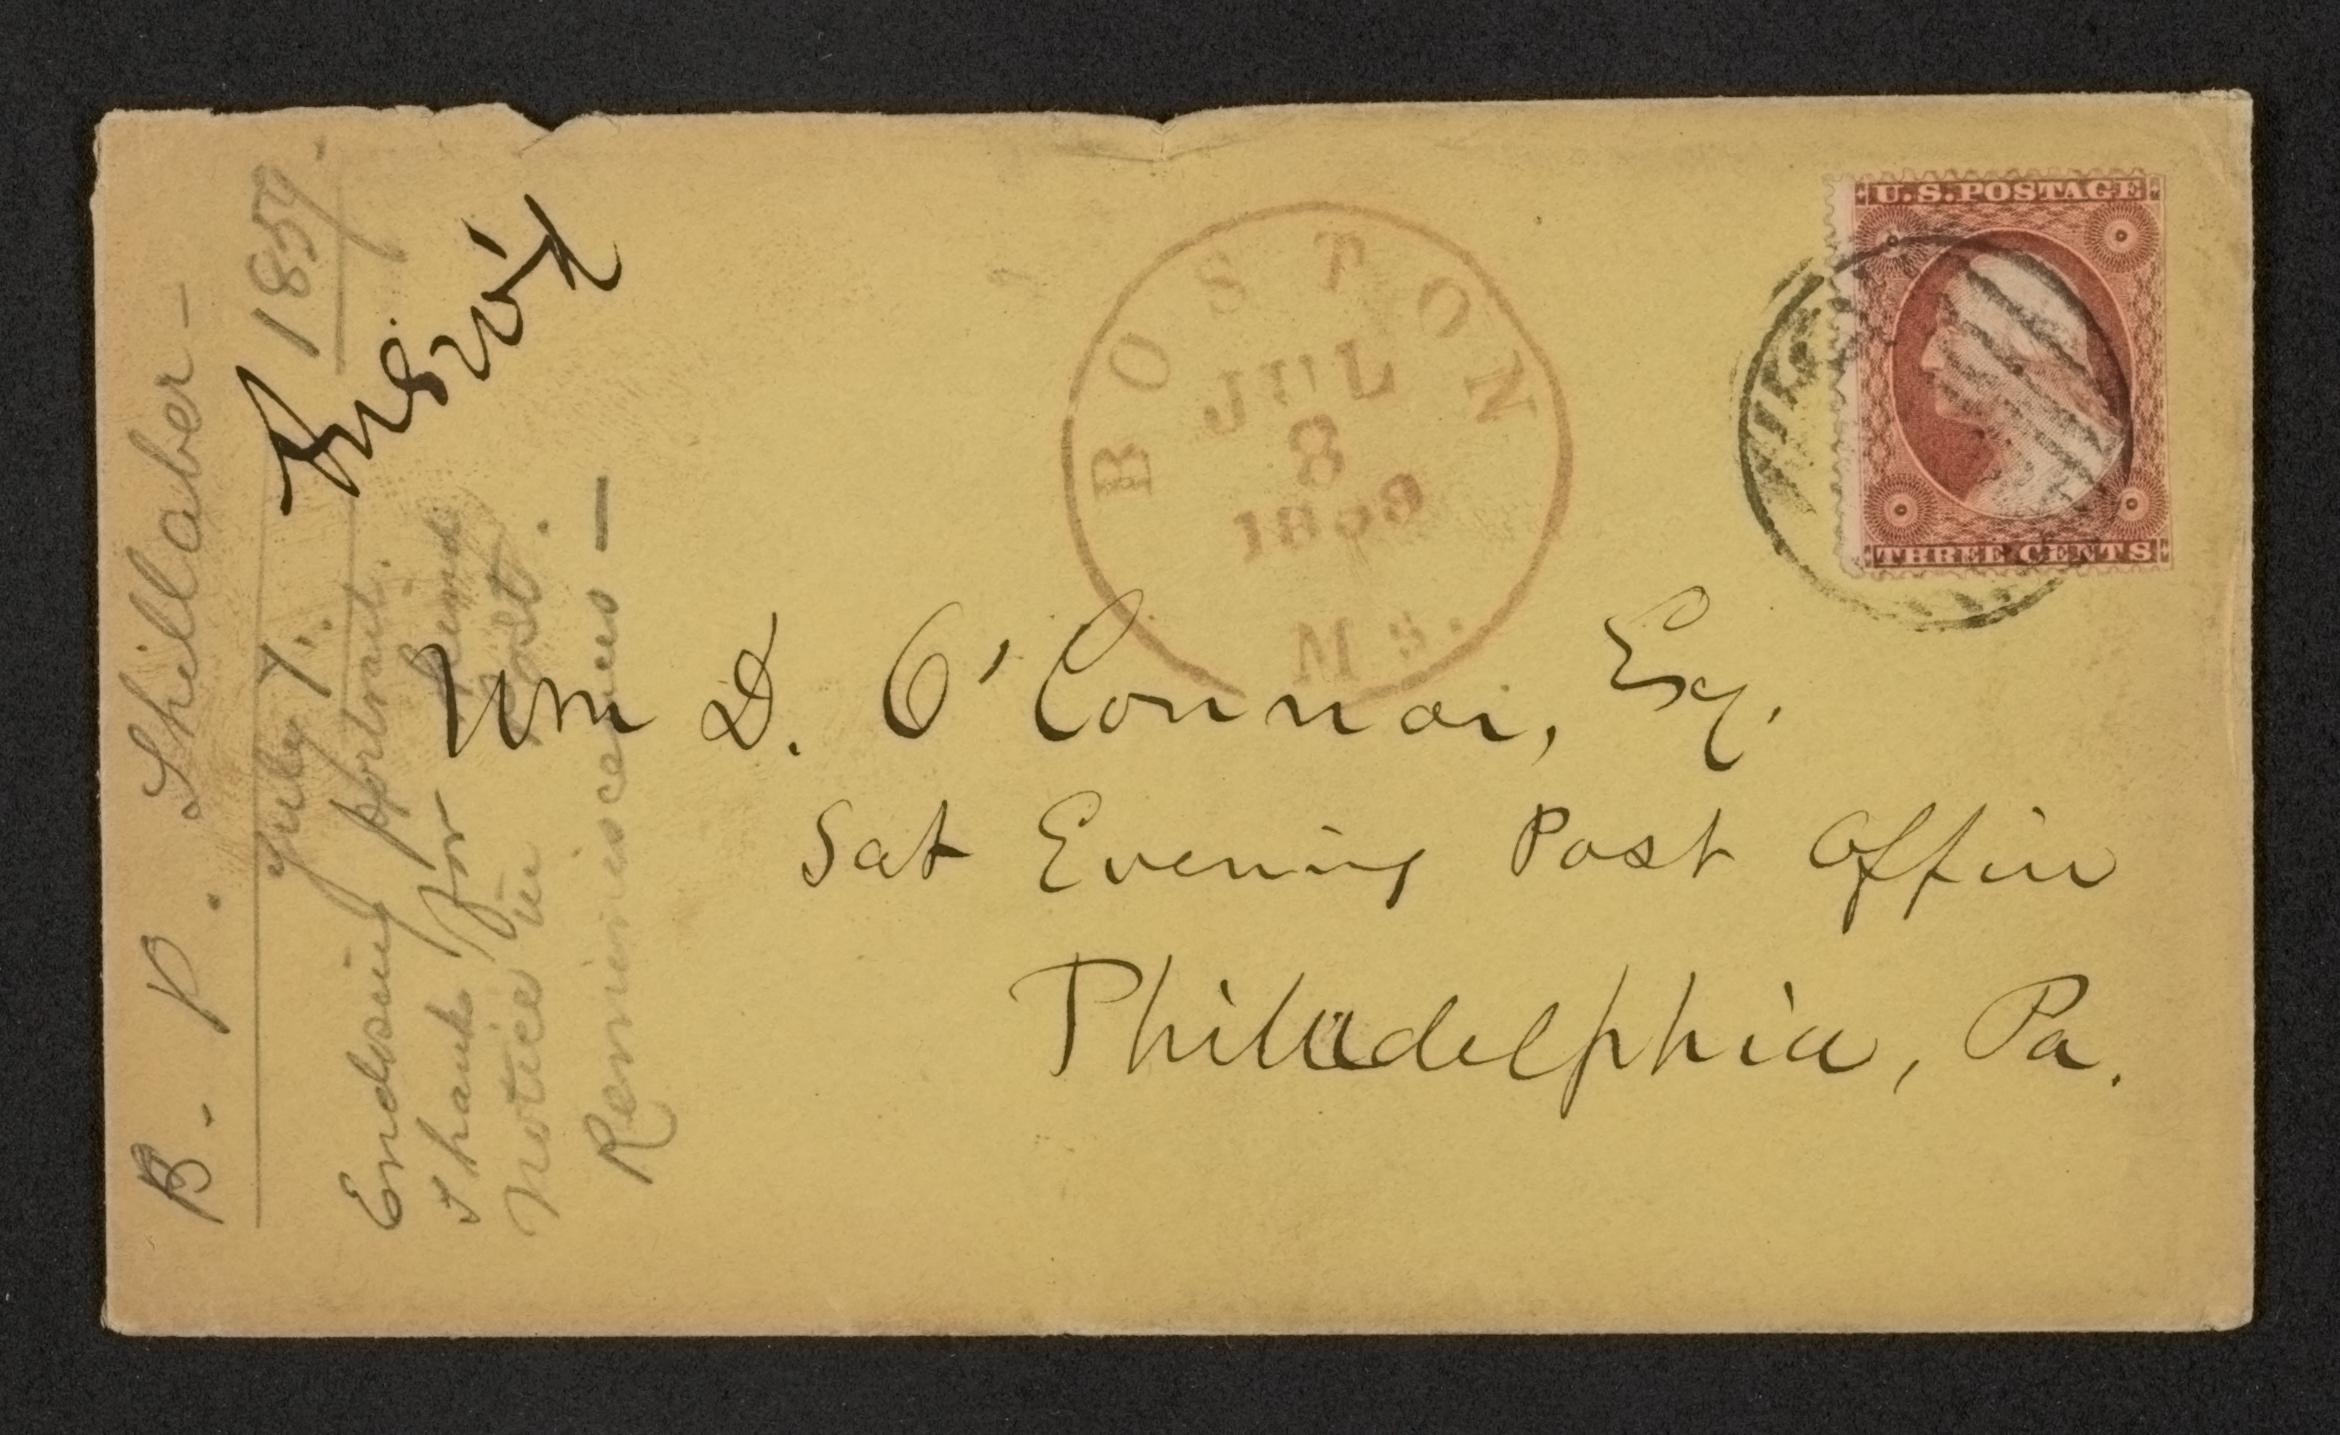 B. P. Shillaber –
July 7. 1859.
Endosing portrait.
Thanks for kind
notice in Post.
Reminiscences –
BOSTON
JUL
8
1859
Ms.
U.S. POSTAGE
THREE CENTS
Wm D. O'Connor, Esq.
Sat Evening Post Office
Philadelphia, Pa.